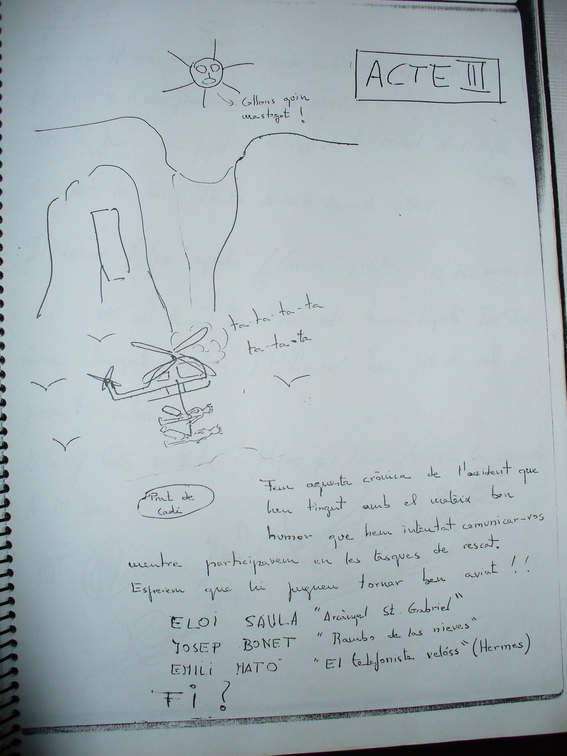 ACTE III
Collons quin
mastegot !
ta-ta-ta-ta
ta-ta-ta
Prat de
Cadí
Fem aquesta crònica de l'accident que
heu tingut amb el mateix bon
humor que hem intentat comunicar-vos
mentre participavem en les tasques de rescat.
Esperem que hi pugueu tornar ben aviat !!
ELOI SAULA "Arcàngel St. Gabriel"
JOSEP BONET "Rambo de las nieves"
EMILI MATÓ "El telefonista velóss" (Hermes)
Fi ?